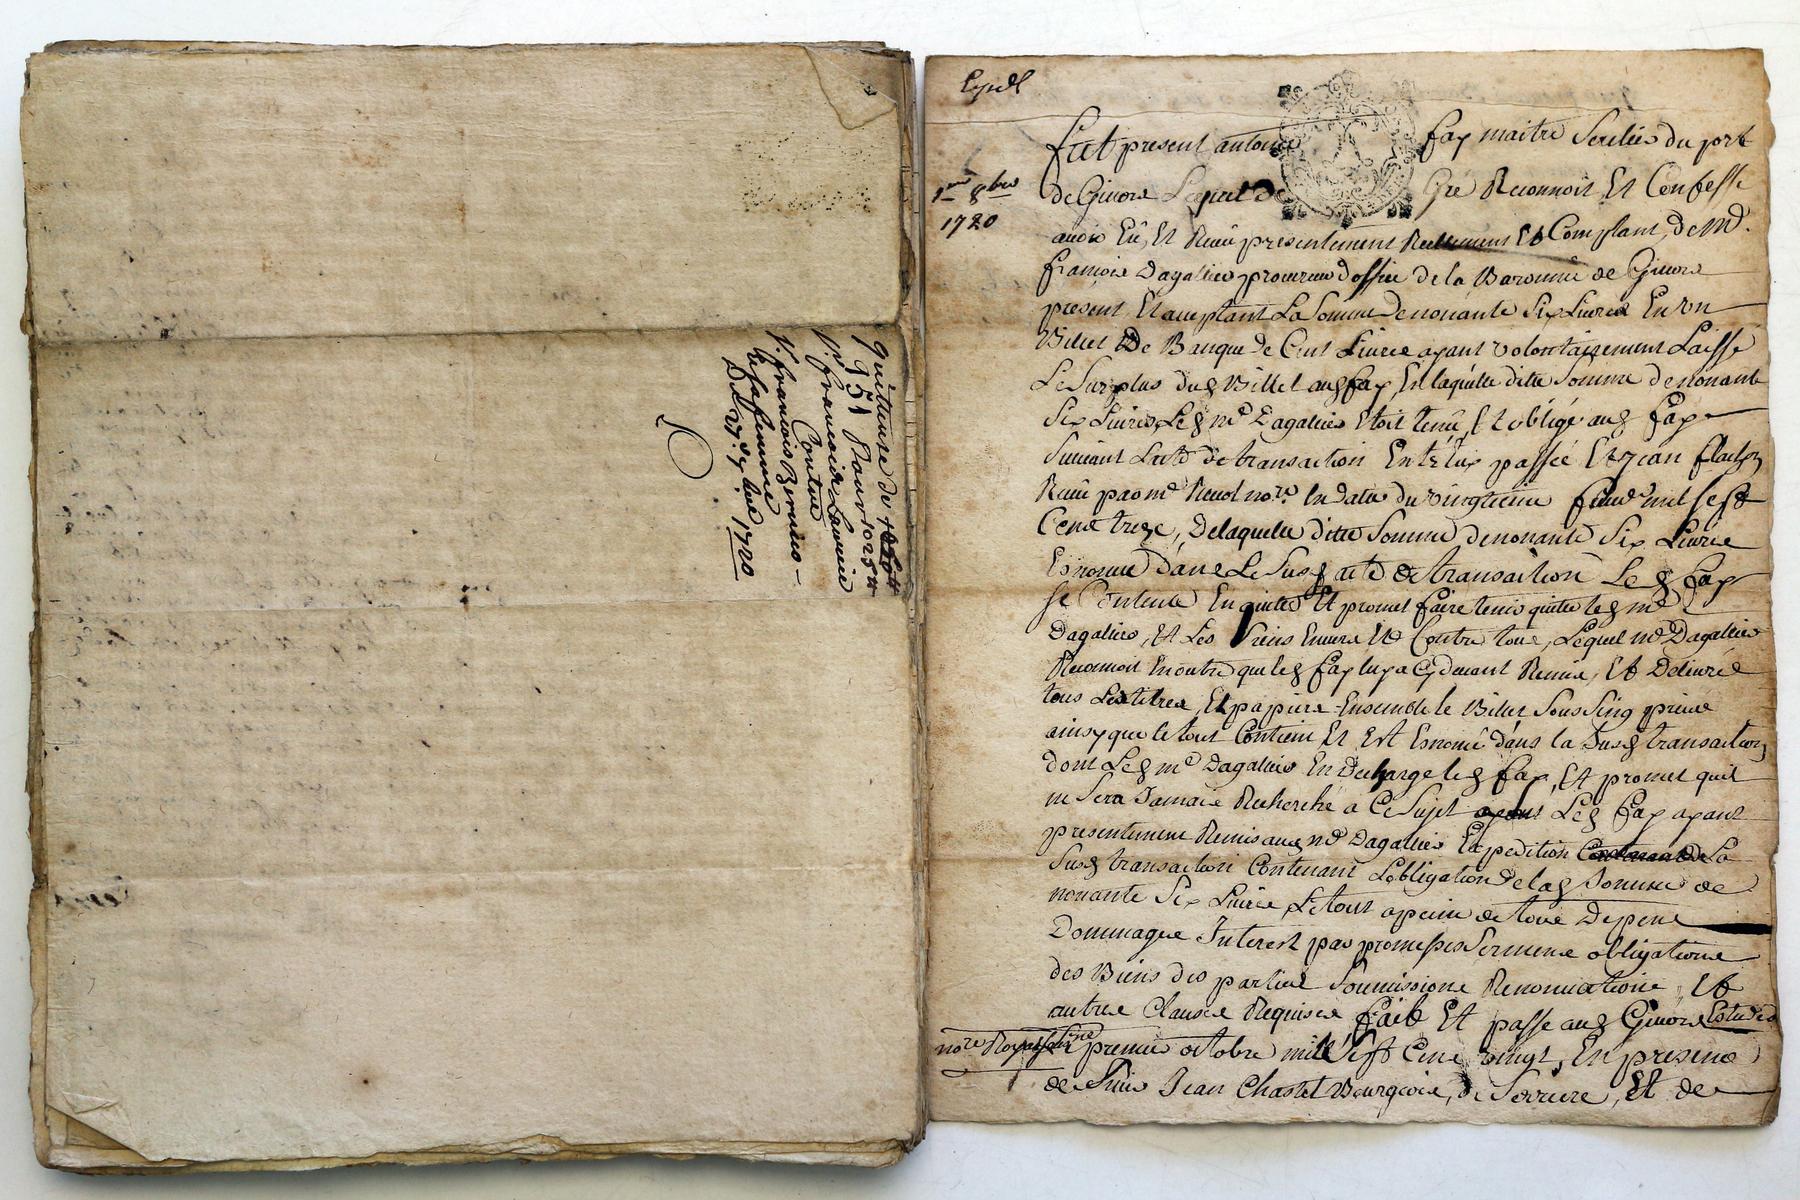 quittance de
951 pour 1025 ₶
Sr. francois Lannoid
Contre
Sr. francois Bernico
et sa femme
Du 27e 7bre 1720
Expedl
1er 8bre
1720
fut present antoine fay maitre du port
de Givors Lequel de Gré Reconnoit Et Confesse
avoir Eû, Et Reçû presentement Réellement Et Comptant, de Md.
françois Dagallier procureur d'office de la Baronnie de Givors
present Et acceptant La Somme de nonante Six Livres En un
Billet De Banque de Cent Livres ayant volontairement Laissé
Le Surplus dud Billet aud fay, En laquelle ditte Somme de nonante
Six Livres Led me Dagallier Etoit tenû, Et obligé aud fay
Suivant Lacte de transaction Entre Eux passée Et Jean
Reçû par me nore. En datte du vingtieme mil Sept
Cent treze, De laquelle ditte Somme de nonante Six Livres
Enoncée dans Le Susd acte de transaction Le d fay
Se Contente En quitte Et promet faire tenir quitte led me
Dagallier, Et Les Siens Envers Et Contre tous, Lequel me Dagallier
Reconnoit En outre que led fay luy a Cydevant Remis, Et Delivré
tous Les titres, Et papiers Ensemble le Billet Sous Sing privé
ainsy que le tout Contient Et Est Enoncé dans la Susd transaction
dont Led me Dagallier En Décharge led fay, Et promet quil
ne Sera Jamais Recherché a Ce Sujet Led fay ayant
presentement Remis aud me Dagallier Expedition De La
Susd transaction Contenant Lobligation de lad Somme de
nonante Six Livres, Le tout a peine de tous Depens
Dommages Interest par promesses Serment obligations
des Biens des parties Soumissions Renonciations Et
autres Clauses Requises fait Et passé aud Givors Estude du
nore Royal Soussigné premier octobre mil Sept Cent vingt, En presence
de Sieur Jean Chastel Bourgeois, de Serriere, Et de